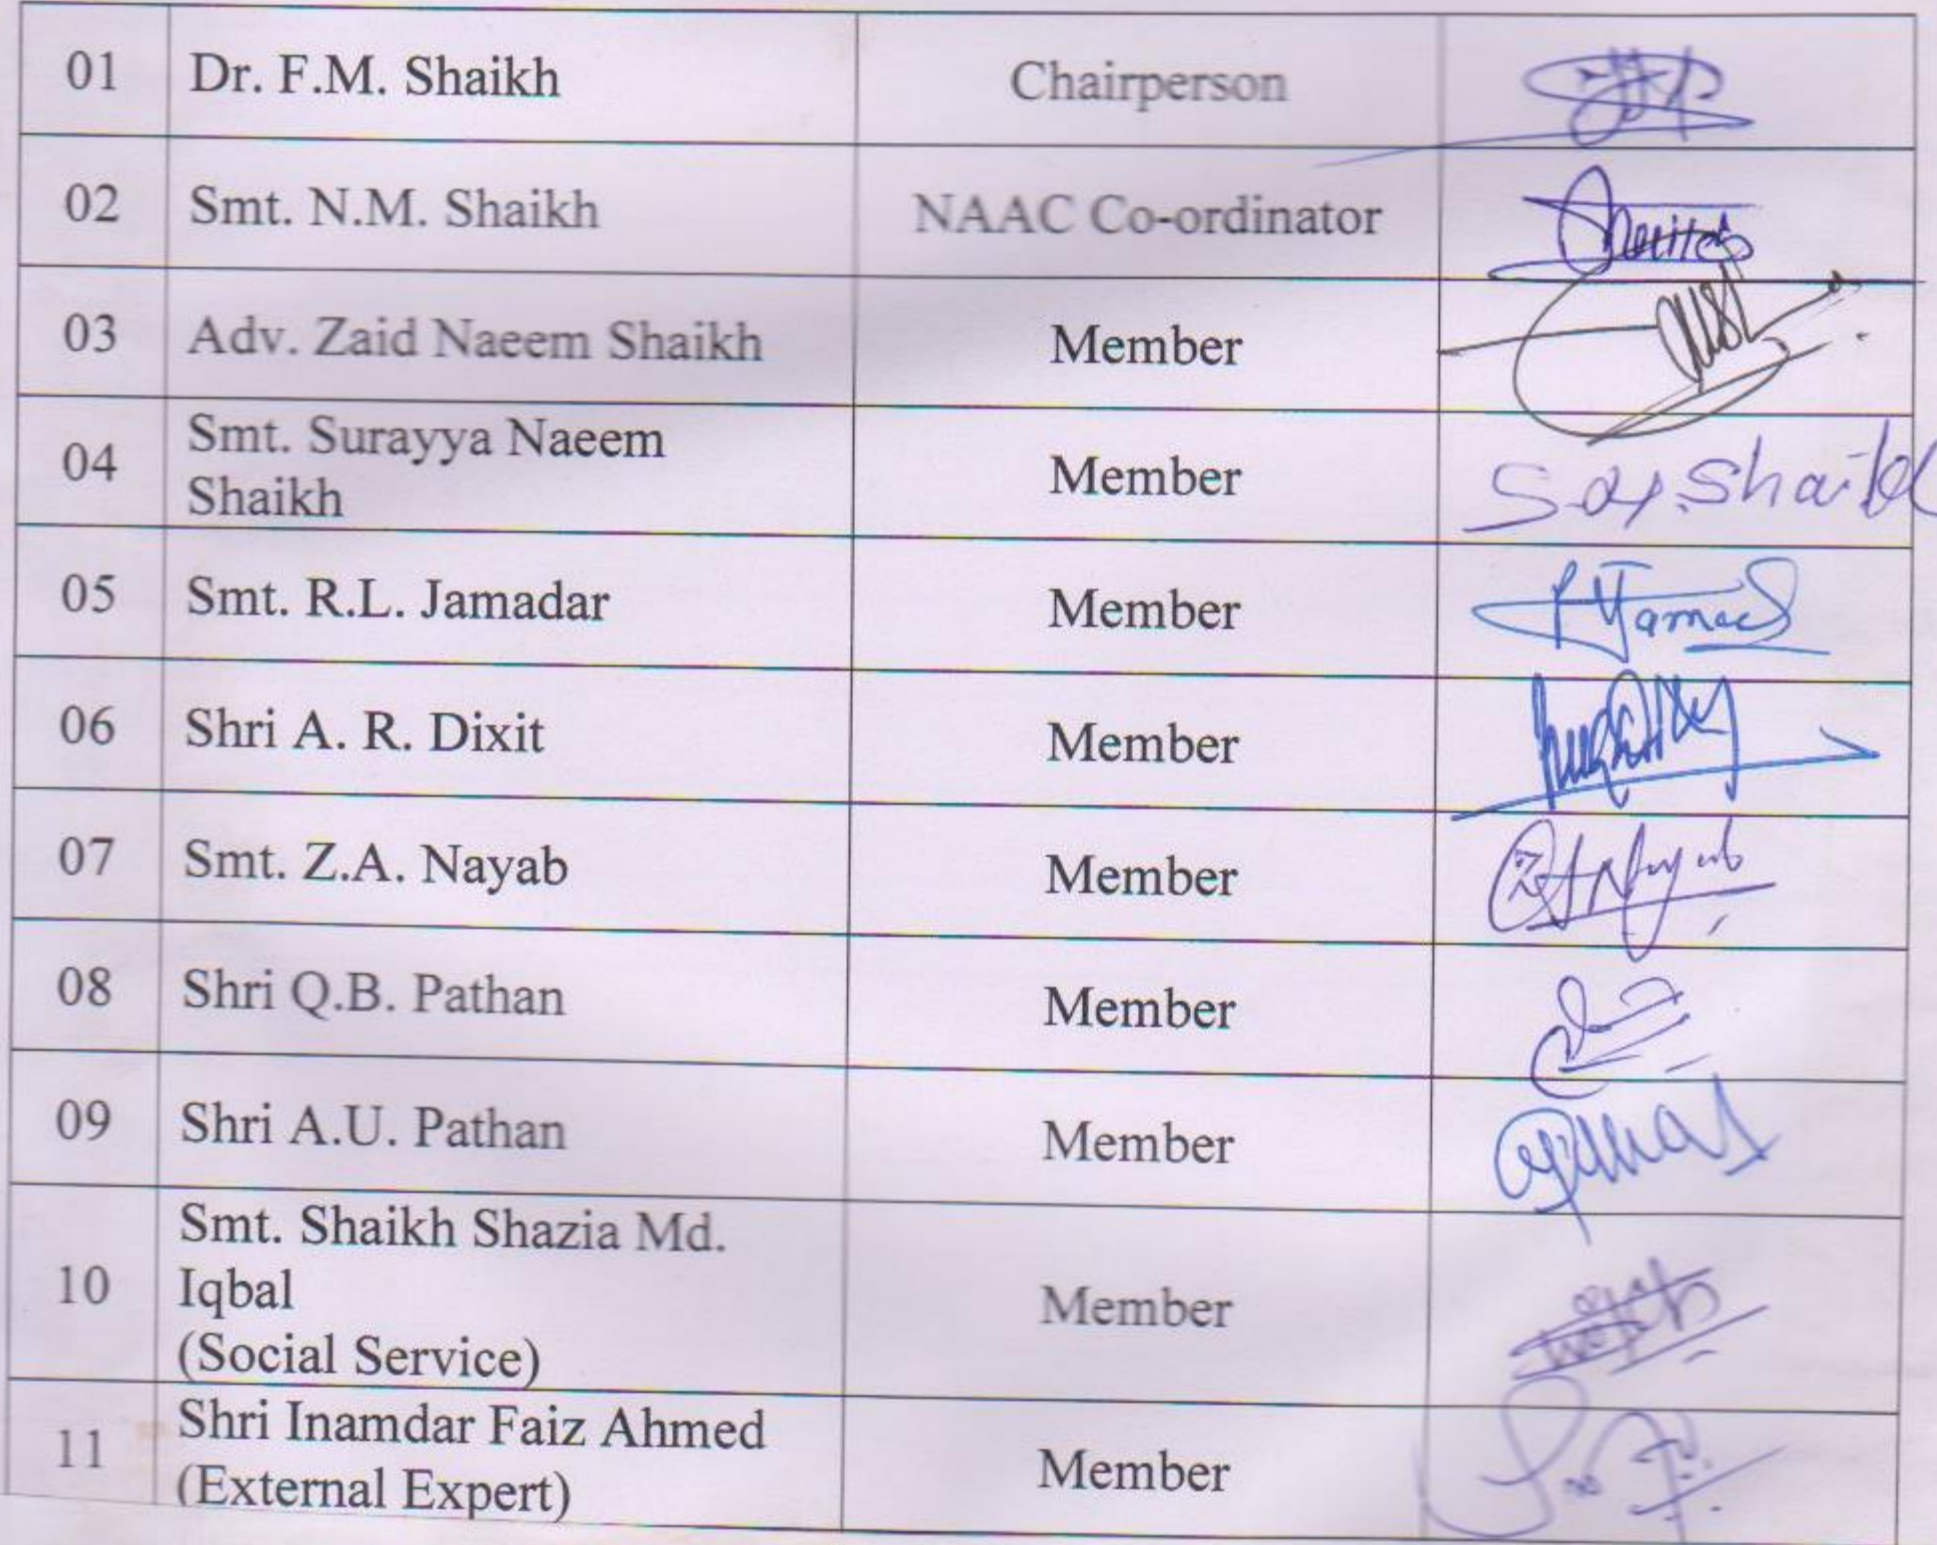 01 Dr. F.M. Shaikh Chairperson
02 Smt. N.M. Shaikh NAAC Co-ordinator
03 Adv. Zaid Naeem Shaikh Member
04 Smt. Surayya Naeem
Shaikh Member Shaikh
05 Smt. R.L. Jamadar Member
06 Shri A. R. Dixit Member
07 Smt. Z.A. Nayab Member
08 Shri Q.B. Pathan Member
09 Shri A.U. Pathan Member
10 Smt. Shaikh Shazia Md.
Iqbal
(Social Service) Member
11 Shri Inamdar Faiz Ahmed
(External Expert) Member